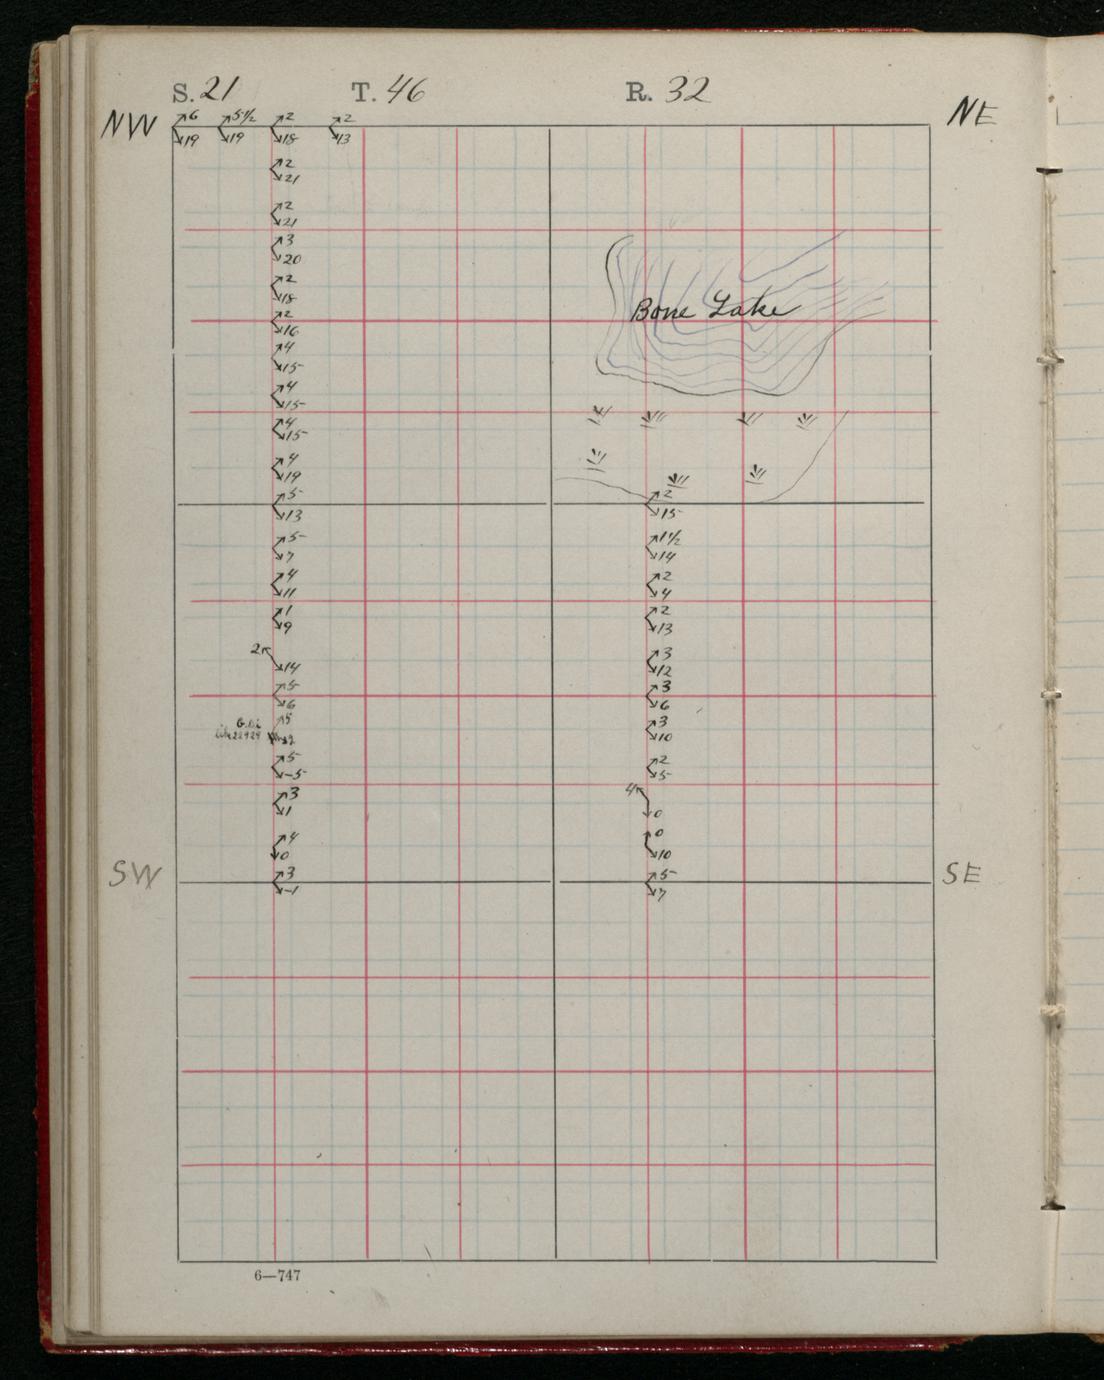 S. 21 T. 46 R. 32
NW NE
6 5½ 2 2
19 19 18 13
2
21
2
21
3
20
2
18
Bone Lake
2
16
4
15
4
15
4
15
4
19
5 2
13 15
5 1½
7 14
4 2
11 4
1 2
9 13
2 3
14 12
5 3
6 6
5 3
10
5 2
-5 5
3 4
1 0
4 0
0 10
SW SE
3 5
-1 7
6—747